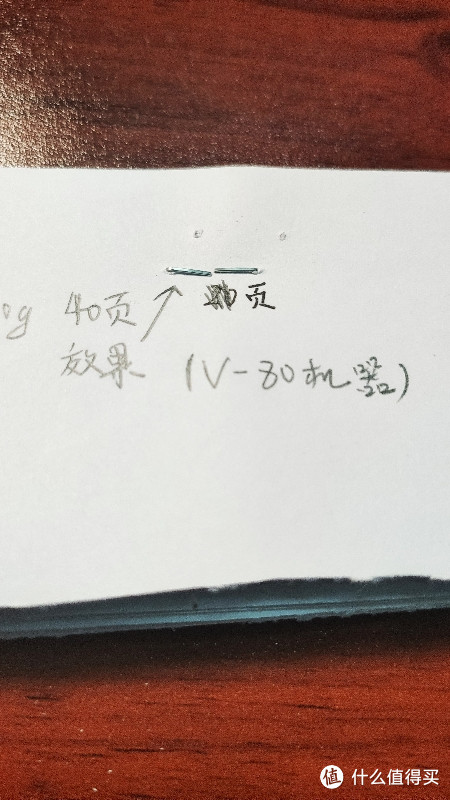 0g 40页 页
效果 (V-80机器)
值 什么值得买